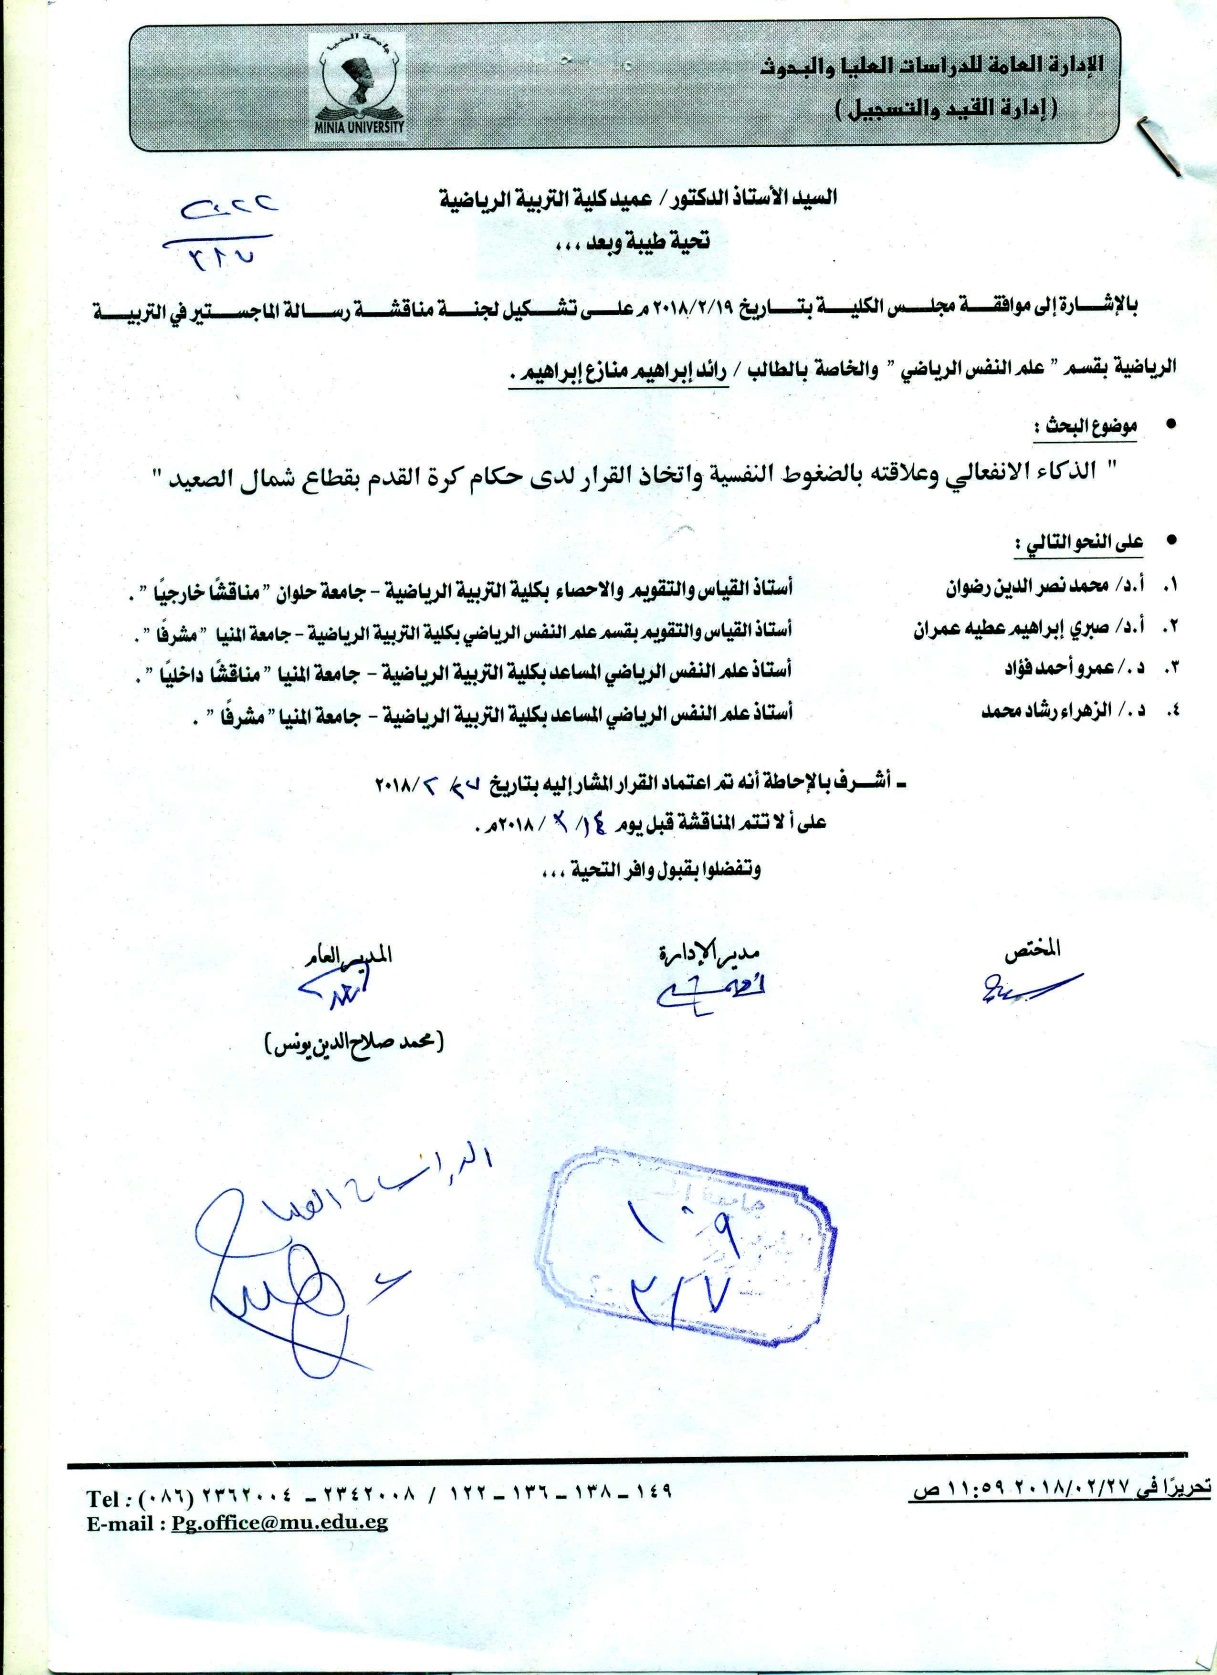 الإدارة العامة للدراسات العليا والبحوث
( إدارة القيد والتسجيل )
جامعة المنيا
MINIA UNIVERSITY
السيد الأستاذ الدكتور / عميد كلية التربية الرياضية
تحية طيبة وبعد ،،،
بالإشارة إلى موافقة مجلس الكلية بتاريخ ٢٠١٨/٢/١٩ م على تشكيل لجنة مناقشة رسالة الماجستير في التربية
الرياضية بقسم " علم النفس الرياضي " والخاصة بالطالب / رائد إبراهيم منازع إبراهيم .
• موضوع البحث :
" الذكاء الانفعالي وعلاقته بالضغوط النفسية واتخاذ القرار لدى حكام كرة القدم بقطاع شمال الصعيد "
• على النحو التالي :
١. أ.د/ محمد نصر الدين رضوان أستاذ القياس والتقويم والاحصاء بكلية التربية الرياضية – جامعة حلوان " مناقشًا خارجيًا " .
٢. أ.د/ صبري إبراهيم عطيه عمران أستاذ القياس والتقويم بقسم علم النفس الرياضي بكلية التربية الرياضية – جامعة المنيا " مشرفًا " .
٣. د ./ عمرو أحمد فؤاد أستاذ علم النفس الرياضي المساعد بكلية التربية الرياضية – جامعة المنيا " مناقشًا داخليًا " .
٤. د ./ الزهراء رشاد محمد أستاذ علم النفس الرياضي المساعد بكلية التربية الرياضية – جامعة المنيا " مشرفًا " .
ـ أشرف بالإحاطة أنه تم اعتماد القرار المشار إليه بتاريخ ٢٧/ ٢ /٢٠١٨
على ألا تتم المناقشة قبل يوم ١٤/ ٣ / ٢٠١٨م .
وتفضلوا بقبول وافر التحية ،،،
المختص مدير الإدارة المدير العام
(محمد صلاح الدين يونس)
الدراسات العليا
جامعة
١٠٩
٣/٧
تحريرًا في ٢٠١٨/٠٢/٢٧ ١١:٥٩ ص
Tel : (٠٨٦) ٢٣٦٢٠٠٤ – ٢٣٤٢٠٠٨ / ١٢٢ – ١٣٦ – ١٣٨ – ١٤٩
E-mail : Pg.office@mu.edu.eg